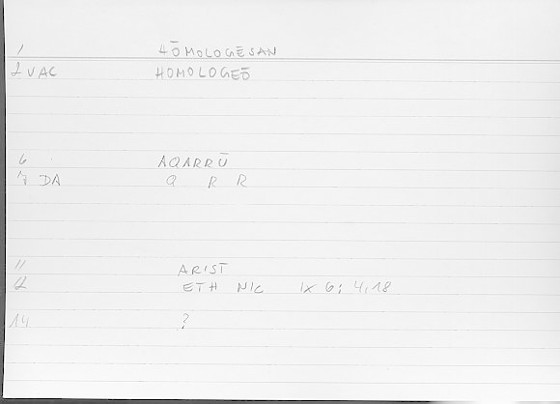 1 HŌMOLOGĒSAN
2 VAC HOMOLOGEŌ
6 AQARRŪ
7 DA Q R R
11 ARIST
12 ETH NIC IX 6; 4,18
14 ?